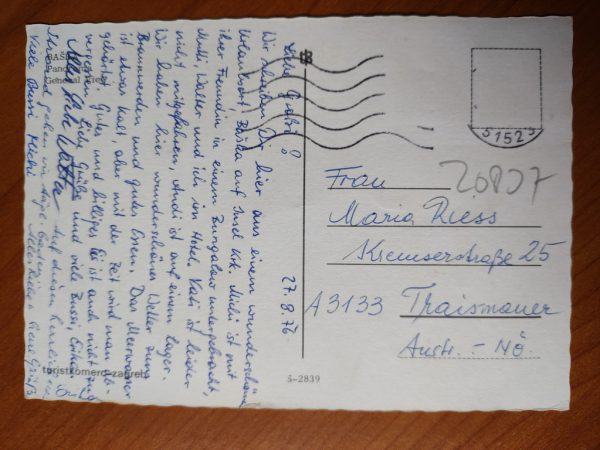 Liebe Großi!
27.8.76
Wir schreiben Dir hier aus einem wunderschönen
Urlaubsort, Baška auf Insel Krk. Michi ist mit
ihrer Freundin in einem Bungalow untergebracht,
Walter und ich im Hotel. Kati ist leider
nicht mitgefahren, Andi ist auf einem Lager.
Wir haben hier wunderschönes Wetter zum
Braunwerden und gutes Essen. Das Meerwasser
ist etwas kalt, aber mit der Zeit wird man ab-
gehärtet. Gutes und billiges Eis ist auch nicht zu
vergessen. Liebe Grüße und viele Bussi, Erika
Alles Liebe Walter
Auf diesem herrlichen
Strand gehen wir
Viele Bussi Michi
Alles Liebe
BAŠKA
General View
turistkomerc-zagreb
S-2839
5152
20807
Frau
Maria Riess
Kremserstraße 25
A3133 Traismauer
Austr. - NÖ